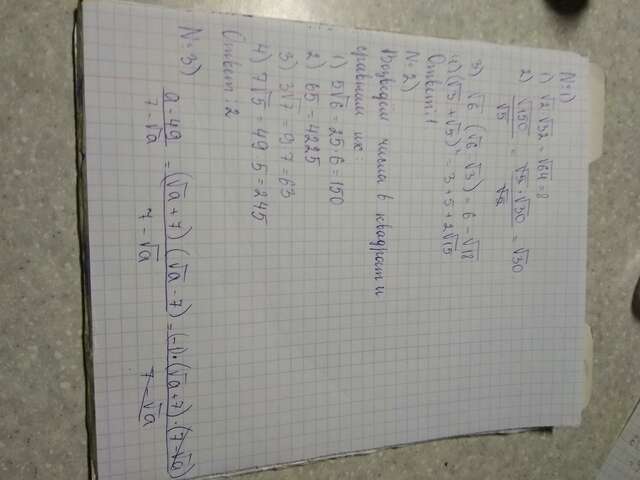 N: 1)
1) √2·√32 = √64 = 8
2) √150/√5 = √5·√30/√5 = √30
3) √6 (√6 - √3) = 6 - √18
4) (√3 + √5)² = 3 + 5 + 2√15
Ответ: 1
N: 2)
Возведём числа в квадрат и
сравним их
1) 5√6 = 25·6 = 150
2) 65 = 4225
3) 3√7 = 9·7 = 63
4) 7√5 = 49·5 = 245
Ответ: 2
N: 3)
a - 49/7 - √a = (√a + 7)(√a - 7)/7 - √a = (-1)·(√a + 7)·(7 - √a)/7 - √a